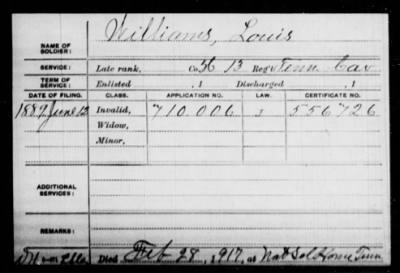 Williams, Louis
NAME OF SOLDIER:
SERVICE: Late rank, Co. 13 Reg't Tenn Cav
TERM OF SERVICE: Enlisted , 1 Discharged , 1
DATE OF FILING. CLASS. APPLICATION NO. LAW. CERTIFICATE NO.
1889 June 12 Invalid, 710.006 556726
Widow,
Minor,
ADDITIONAL SERVICES:
REMARKS:
Died Feb 28, 1917, at Nat Sol Home Tenn